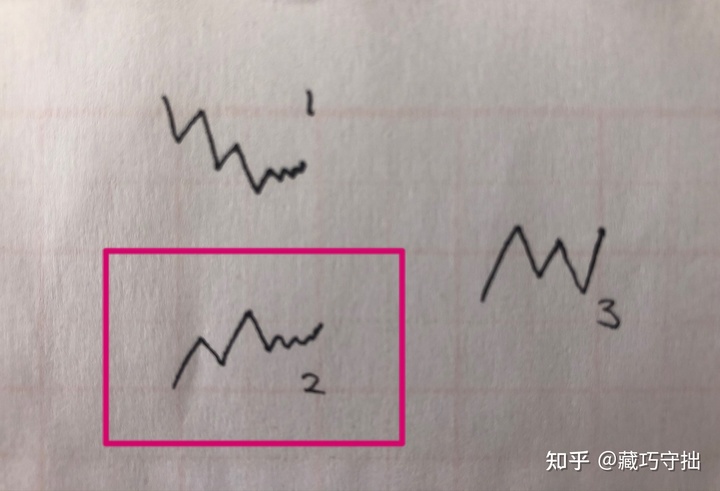 1
2
3
知乎 @藏巧守拙